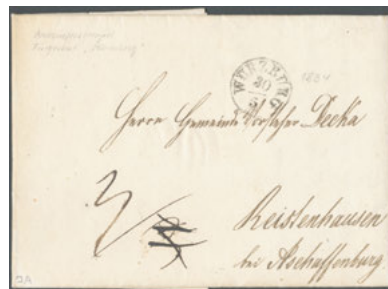 1854
WÜRZBURG
30
5
Herrn Gemeinde Vorsteher Decka
3
Reistenhausen
bei Aschaffenburg